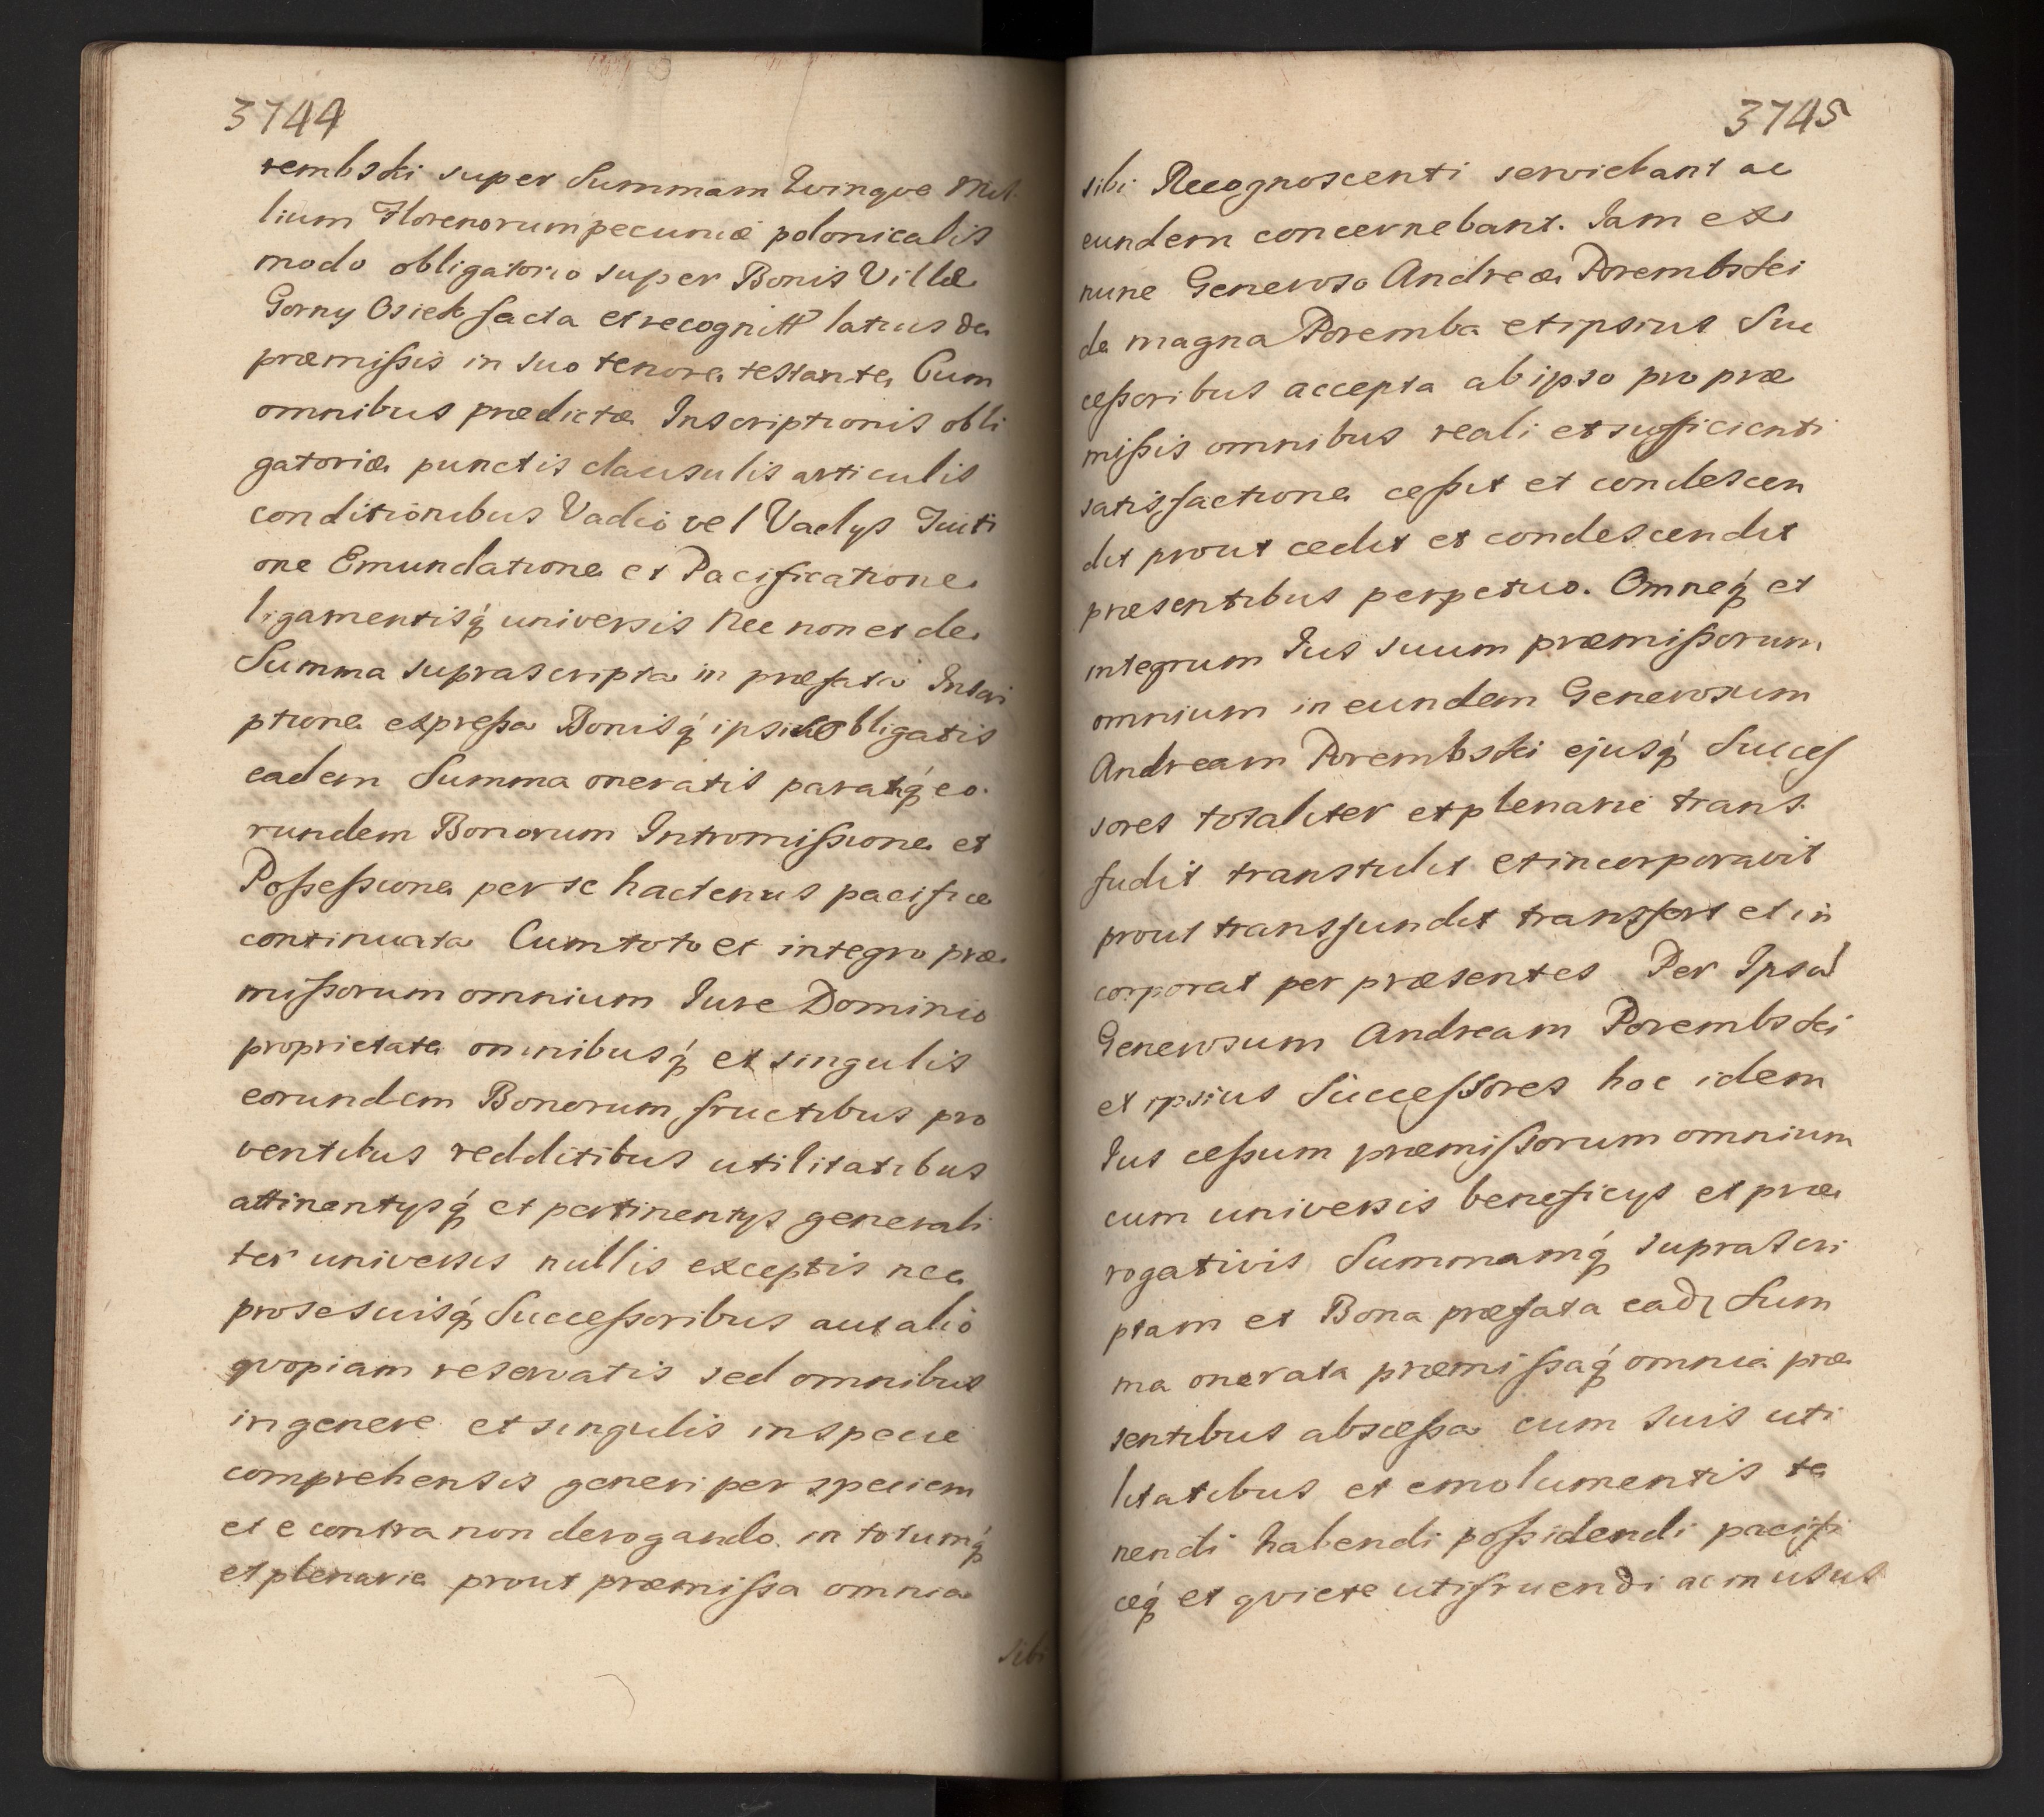 3744
rembski super Summam Qvinqve Mil
lium Florenorum pecuniæ polonicalis
modo obligatorio super Bonis Villæ
Gorny Osiek facta et recognitt latius de
præmißis in suo tenore testante Cum
omnibus prædictæ Inscriptionis obli
gatoriæ punctis clausulis articulis
conditionibus Vadio vel Vadys Tuiti
one Emundatione et Pacificatione
ligamentisq́ universis Nec non et de
Summa suprascripta in præfata Inscri
ptione expreßa Bonisq́ ipsis obligatis
eadem Summa oneratis paratq́ eo.
rundem Bonorum Intromißione et
Poßeßione per se hactenus pacifice
continuata Cum toto et integro præ
mißorum omnium Iure Dominio
proprietate omnibusq́ et singulis
eorundem Bonorum fructibus pro
ventibus redditibus utilitatibus
attinentysq́ et pertinentys generali
ter universis nullis exceptis nec
pro se suisq́ Succeßoribus aut alio
qvopiam reservatis sed omnibus
in genere et singulis in specie
comprehensis generi per speciem
et e contra non derogando in totumq́
et plenarie prout præmißa omnia
sibi
3745
sibi Recognoscenti serviebant ac
eundem concernebant. Iam ex
nunc Generoso Andreæ Porembski
de magna Poremba et ipsius Suc
ceßoribus accepta ab ipso pro præ
mißis omnibus reali et sufficienti
satisfactione ceßit et condescen
dit prout cedit et condescendit
præsentibus perpetuo. Omneq́ et
integrum Ius suum præmißorum
omnium in eundem Generosum
Andream Porembski ejusq́ Succes
sores totaliter et plenarie trans.
fudit transtulit et incorporavit
prout transfundit transfert et in
corporat per præsentes Per Ipsū
Generosum Andream Porembski
et ipsius Succeßores hoc idem
Ius ceßum præmißorum omnium
cum universis beneficys et præ
rogativis Summamq́ suprascri
ptam et Bona præfata ead Sum
ma onerata præmißaq́ omnia præ
sentibus absceßa cum suis uti
litatibus et emolumentis te
nendi habendi poßidendi pacifi
ceq́ et qviete utifruendi ac in usus